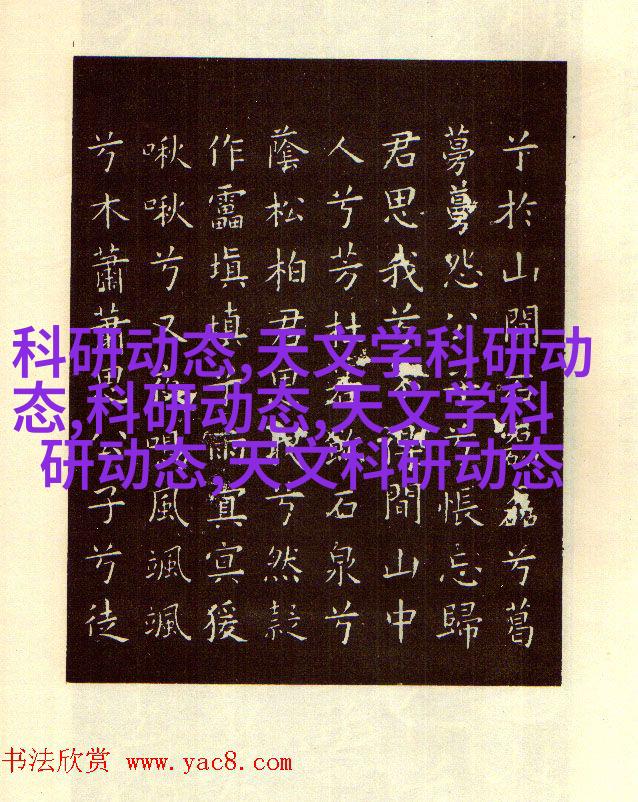 兮於山間石磊磊兮葛
蔓蔓怨公子兮悵忘歸
君思我兮不得間山中
人兮芳杜若飲石泉兮
蔭松柏君思我兮然疑
作靁填填兮雨冥冥猨
啾啾兮又夜鳴風颯颯
兮木蕭蕭思公子兮徒
科研动态,天文学科研动
态,科研动态,天文学科
研动态,天文科研动态
书法欣赏 www.yac8.com